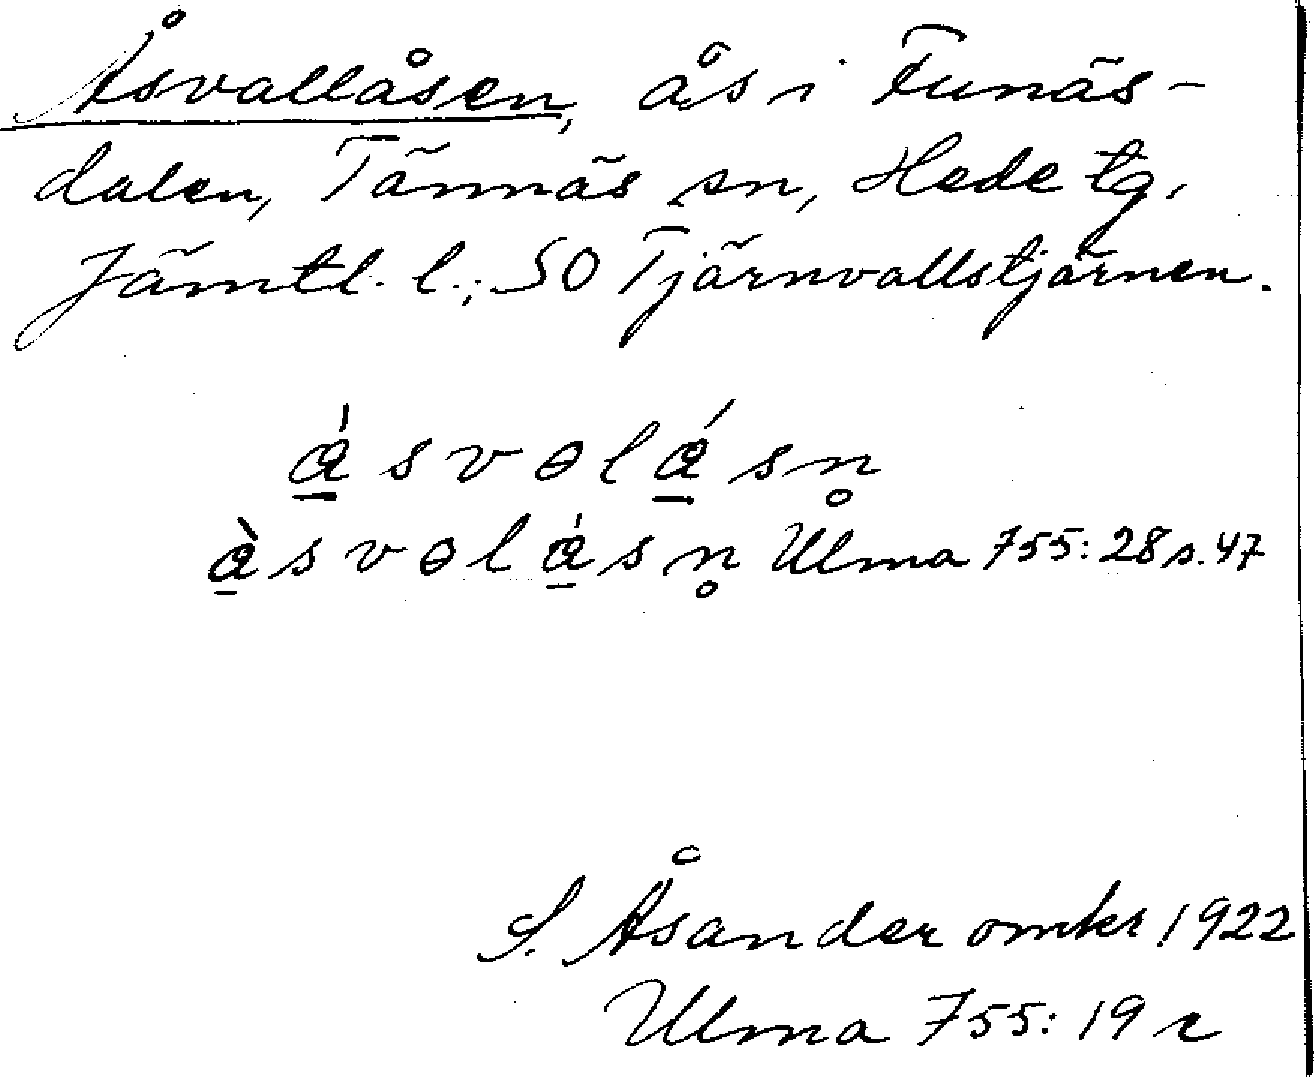 Åsvallåsen, ås i Funäs-
dalen, Tännäs sn, Hede tg,
Jämtl. l.; SO Tjärnvallstjärnen.
ǻ̱svəlǻ̱sn̥
å̱̀svəlǻ̱sn̥ Ulma 755:28 s. 47
S. Åsander omkr 1922
Ulma 755:19 c